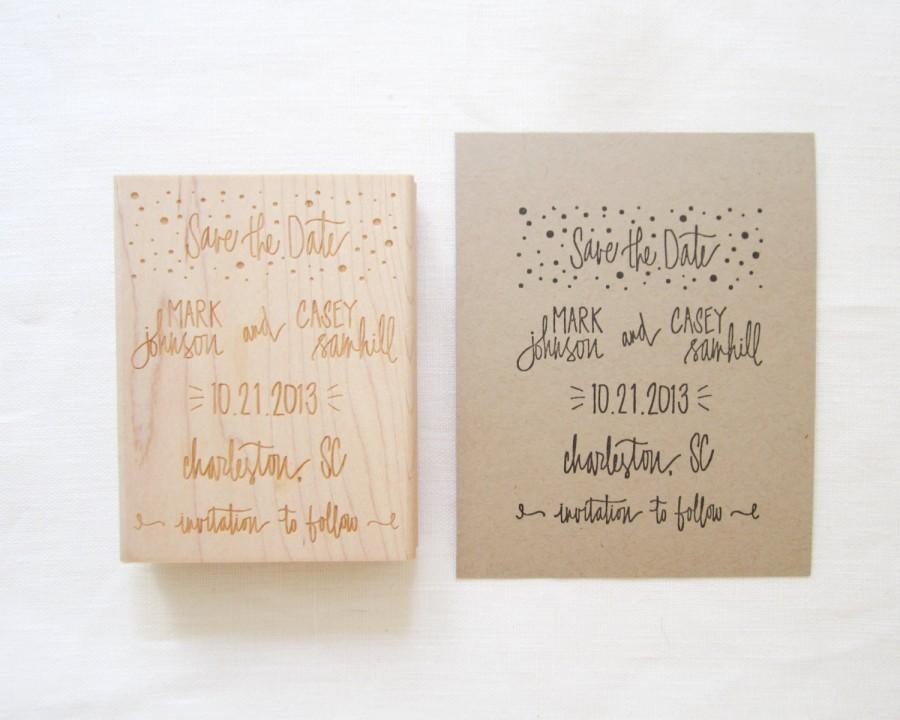 Save the Date
MARK johnson and CASEY samhill
10.21.2013
charleston, SC
invitation to follow
Save the Date
MARK johnson and CASEY samhill
10.21.2013
charleston, SC
invitation to follow